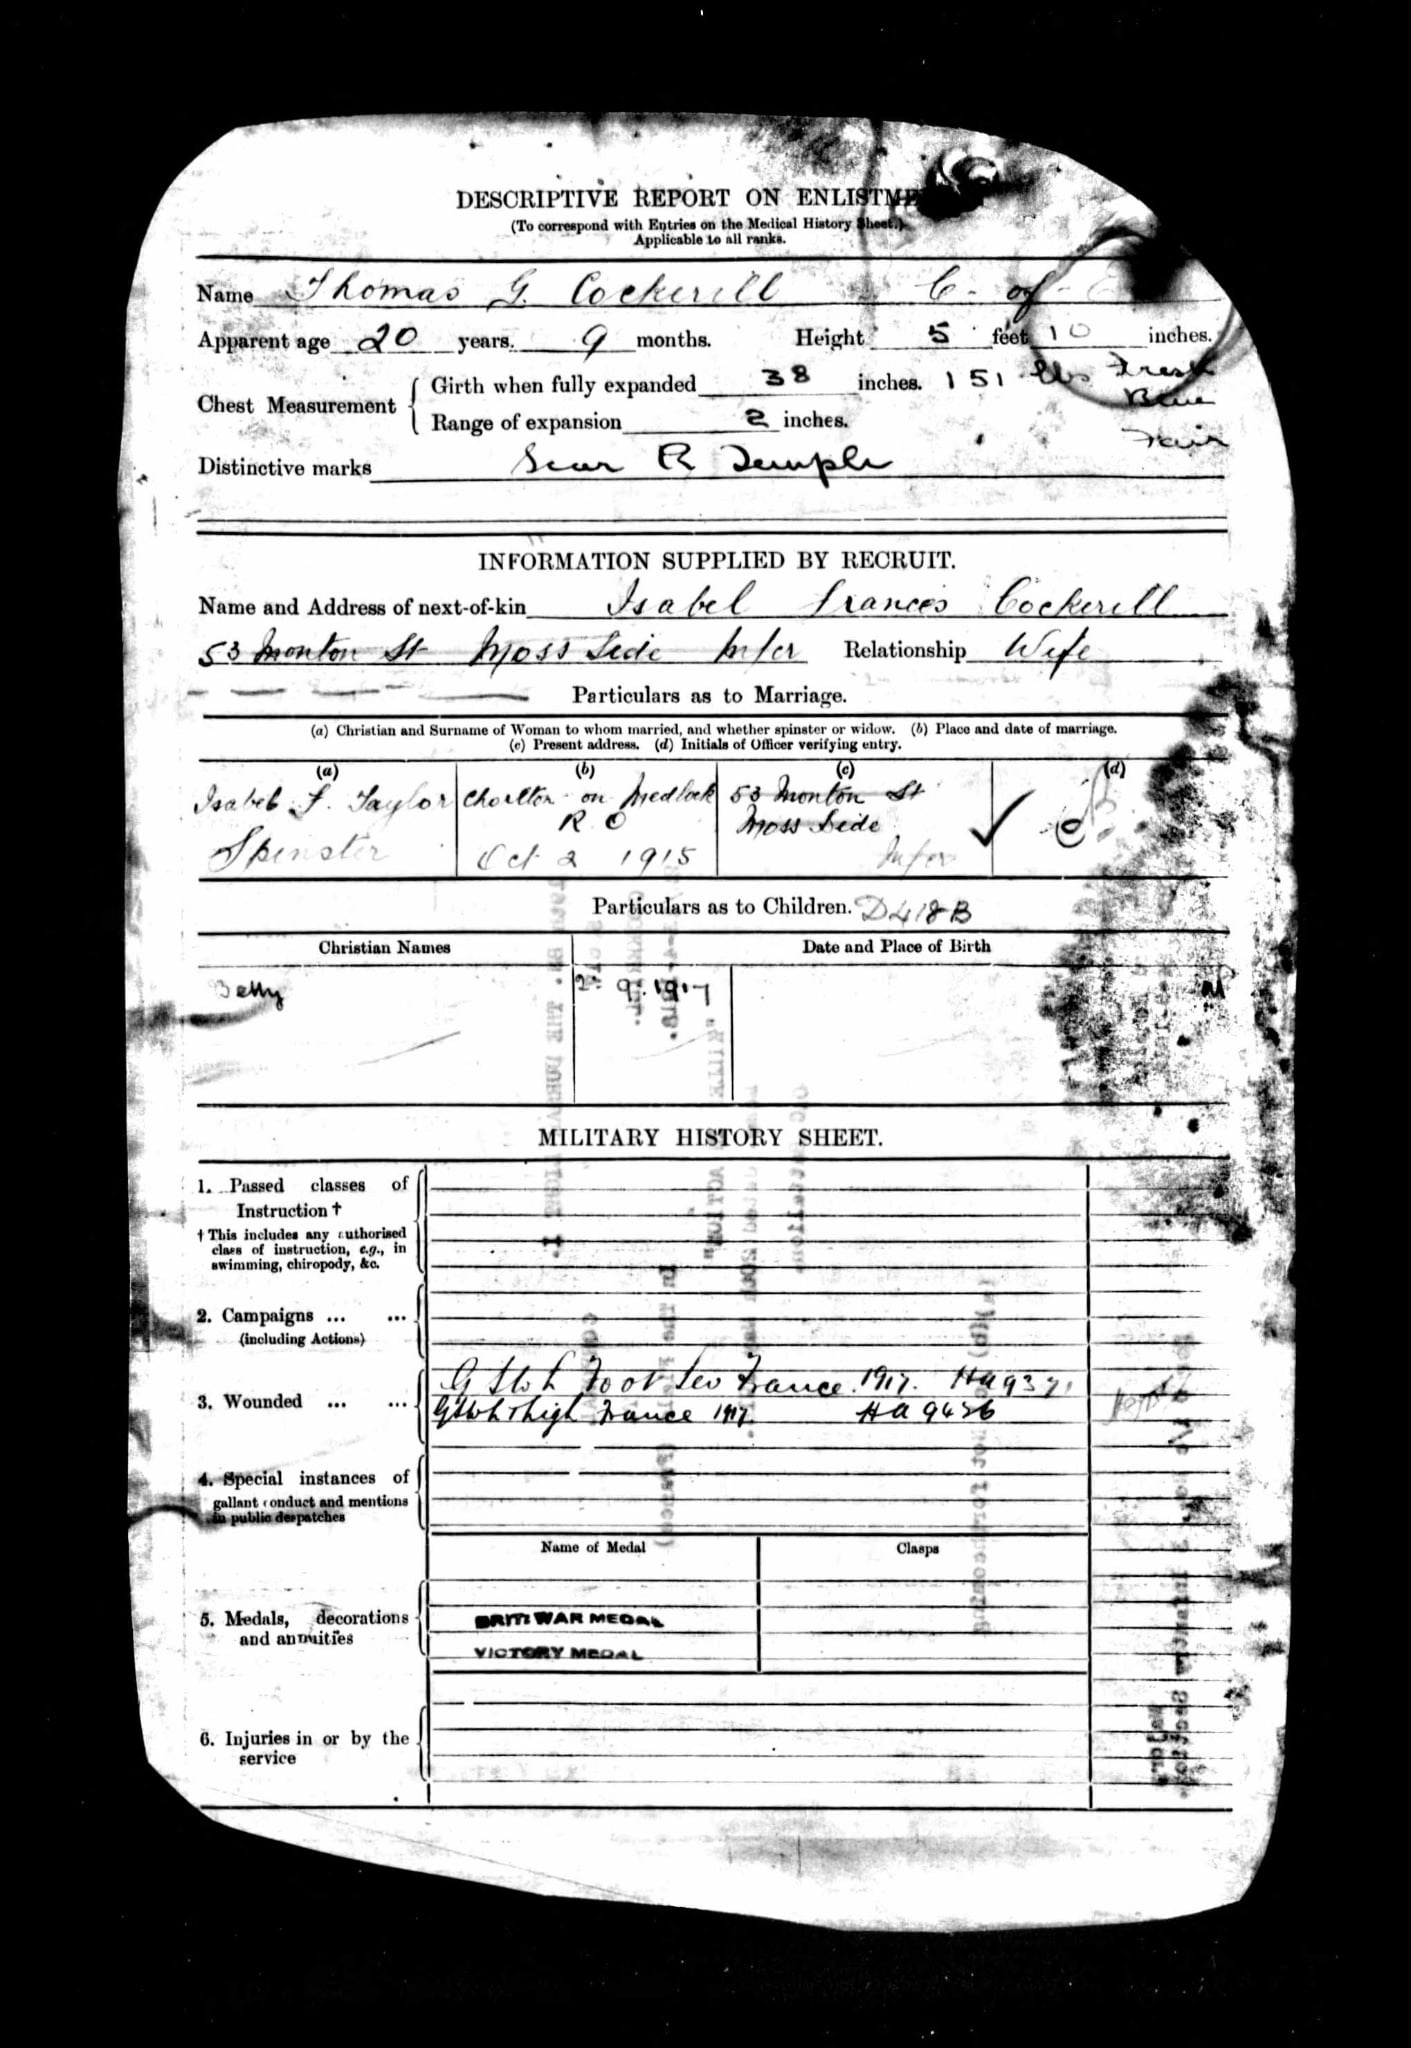 DESCRIPTIVE REPORT ON
(To correspond with Entries on the Medical History Sheet.)
Applicable to all ranks.
Name Thomas G. Cockerill C. of E
Apparent age 20 years. 9 months. Height 5 feet 10 inches.
Chest Measurement { Girth when fully expanded 38 inches. 151 lbs Fresh
Blue
Range of expansion 2 inches.
Fair
Distinctive marks Scar R Temple
INFORMATION SUPPLIED BY RECRUIT.
Name and Address of next-of-kin Isabel Frances Cockerill
53 Monton St Moss Side M/cr Relationship Wife
Particulars as to Marriage.
(a) Christian and Surname of Woman to whom married, and whether spinster or widow. (b) Place and date of marriage.
(c) Present address. (d) Initials of Officer verifying entry.
(a) (b) (c) (d)
Isabel F. Taylor Chorlton on Medlock 53 Monton St
Spinster R O Moss Side
Oct 2 1915 M/cr
Particulars as to Children. D418B
Christian Names Date and Place of Birth
Betty 9.1917
MILITARY HISTORY SHEET.
1. Passed classes of
Instruction †
† This includes any authorised
class of instruction, e.g., in
swimming, chiropody, &c.
2. Campaigns ... ...
(including Actions)
3. Wounded ... ...
G S W L Foot Sev France 1917. HA 937
GSW L thigh France 1917. HA 9456
4. Special instances of
gallant conduct and mentions
in public despatches
Name of Medal Clasps
5. Medals, decorations
and annuities
BRIT: WAR MEDAL
VICTORY MEDAL
6. Injuries in or by the
service